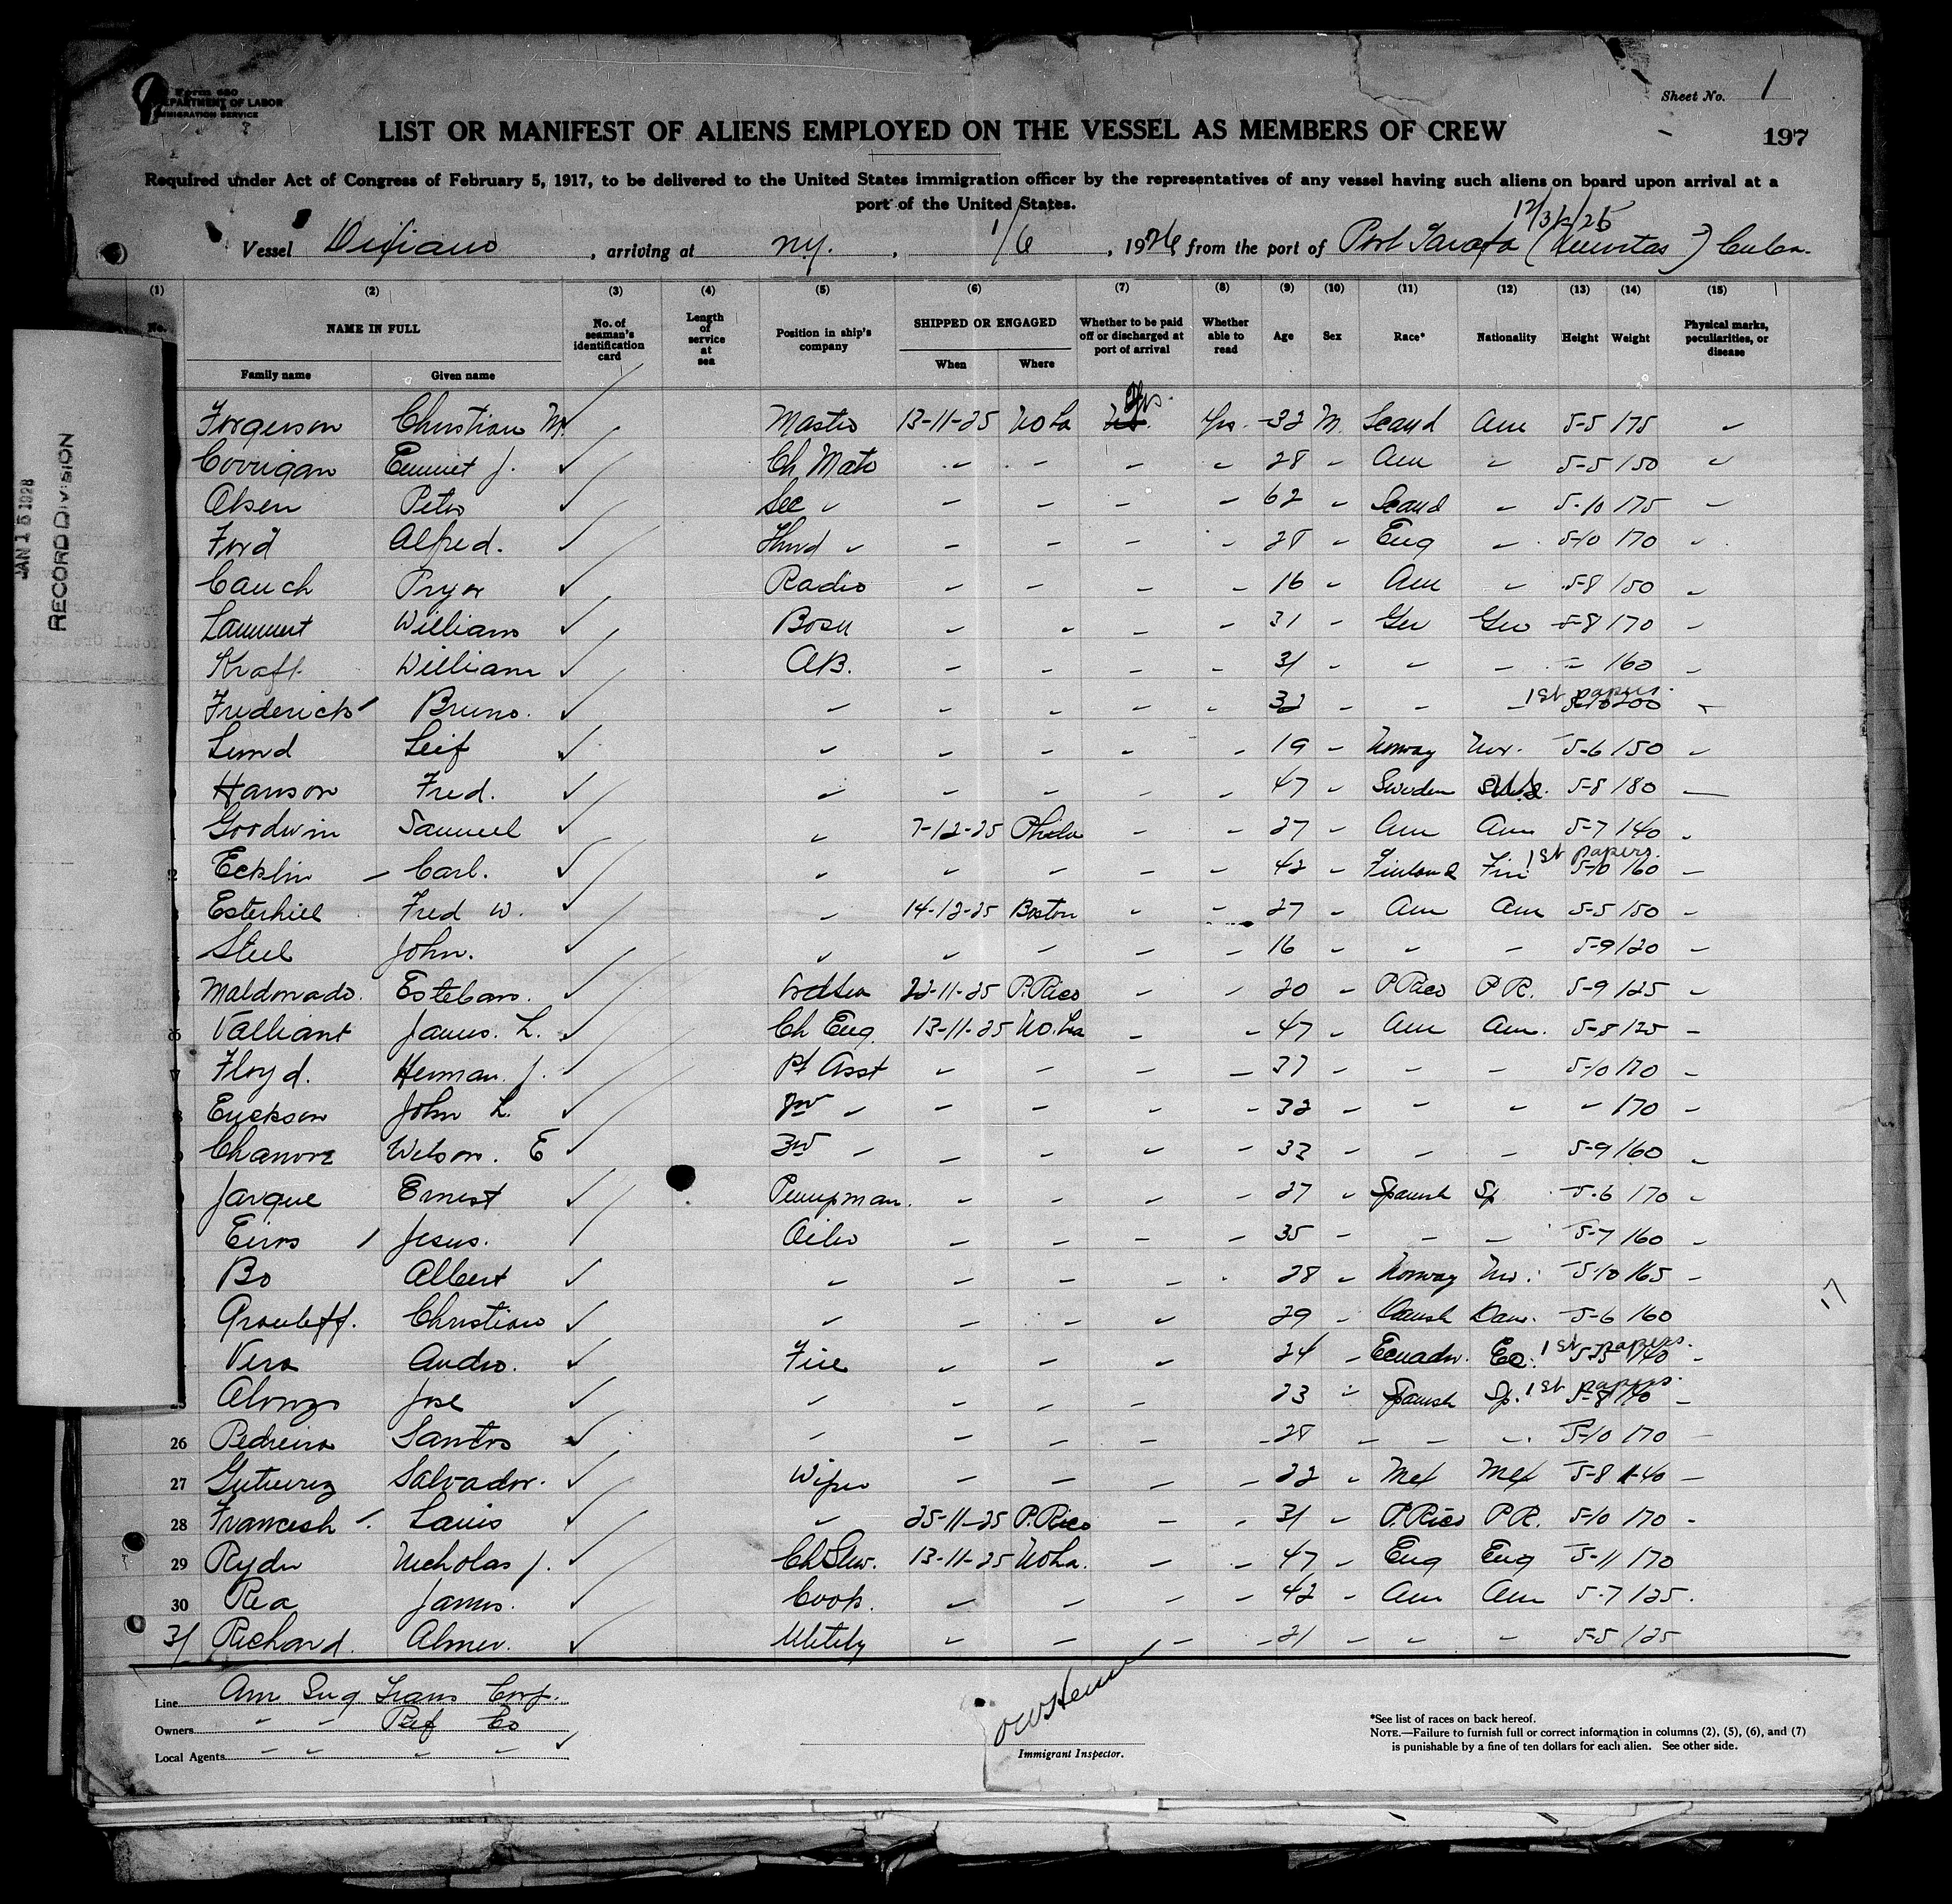 Form 680
DEPARTMENT OF LABOR
IMMIGRATION SERVICE
Sheet No. 1
LIST OR MANIFEST OF ALIENS EMPLOYED ON THE VESSEL AS MEMBERS OF CREW
197
Required under Act of Congress of February 5, 1917, to be delivered to the United States immigration officer by the representatives of any vessel having such aliens on board upon arrival at a
port of the United States.
12/31/25
Vessel Dixiano, arriving at N.Y., 1/6, 1926 from the port of Port Tarafa (Nuevitas) Cuba.
(1) (2) (3) (4) (5) (6) (7) (8) (9) (10) (11) (12) (13) (14) (15)
No. NAME IN FULL No. of seaman's identification card Length of service at sea Position in ship's company SHIPPED OR ENGAGED Whether to be paid off or discharged at port of arrival Whether able to read Age Sex Race* Nationality Height Weight Physical marks, peculiarities, or disease
Family name Given name When Where
Yes.
Forgerson Christian M. Master 13-11-25 NO La Yes. 32 M. Scand Am 5-5 175 -
Corrigan Emmet J. Ch Mate - - - - 28 - Am - 5-5 150 -
Olsen Peter Sec - - - - - 62 - Scand - 5-10 175 -
Ford Alfred. Third - - - - - 28 - Eng - 5-10 170 -
Cauch Pryor Radio - - - - 16 - Am - 5-8 150 -
Lammert William Bosn - - - - 31 - Ger Ger 5-8 170 -
Kraft William A.B. - - - - 31 - - - - 160 -
1st papers.
Fredericks Bruno. - - - - - 32 - - - 5-10 200 -
Lund Leif - - - - - 19 - Norway Nor. 5-6 150 -
Hanson Fred. - - - - - 47 - Sweden 5-8 180 -
Goodwin Samuel - 7-12-25 Phila - - 27 - Am Am 5-7 140 -
1st Papers.
Ecklin - Carl. - - - - - 42 - Finland Fin 5-10 160 -
Esterhill Fred W. - 14-12-25 Boston - - 27 - Am Am 5-5 150 -
Steel John. - - - - - 16 - - - 5-9 120 -
Maldonado. Esteban. Ord Sea 22-11-25 P. Rico - - 20 - P Rico P R. 5-9 125 -
Valliant James. L. Ch Eng. 13-11-25 NO. La - - 47 - Am Am. 5-8 125 -
Floyd. Herman. J. 1st Asst - - - - 37 - - - 5-10 170 -
Erickson John L. 2nd - - - - - 32 - - - - 170 -
Wilson. E 3rd - - - - - 33 - - - 5-9 160 -
Jarque Ernest Pumpman. - - - - 27 - Spanish Sp 5-6 170 -
Eiros Jesus. Oiler - - - - 35 - - - 5-7 160 -
Bo Albert - - - - - 28 - Norway Nor. 5-10 165 -
Christian - - - - 29 - Danish Dan. 5-6 160
1st papers.
Vera Andro. Fire - - - 24 - Ecuador. Ec. 5-5 140 -
1st papers.
Alonzo Jose - - - - - 23 - Spanish Sp. 5-8 140 -
26 Pedreira Santos - - - - - 28 - - - 5-10 170 -
27 Gutierrez Salvador. Wiper - - - - 22 - Mex Mex 5-8 140 -
28 Francesh Louis - 25-11-25 P. Rico - - 31 - P. Rico P R. 5-10 170 -
29 Ryder Nicholas J. Ch Stew. 13-11-25 NO La. - - 47 - Eng Eng 5-11 170
30 Rea James. Cook. - - - - 42 - Am Am 5-7 125.
31 Richard. Almer. Utility - - - - 21 - - - 5-5 125
JAN 15 1928
RECORD DIVISION
17
Line Am Sug Trans Corp.
Owners - - Ref Co
Local Agents - - - -
Immigrant Inspector.
*See list of races on back hereof.
NOTE.—Failure to furnish full or correct information in columns (2), (5), (6), and (7)
is punishable by a fine of ten dollars for each alien. See other side.